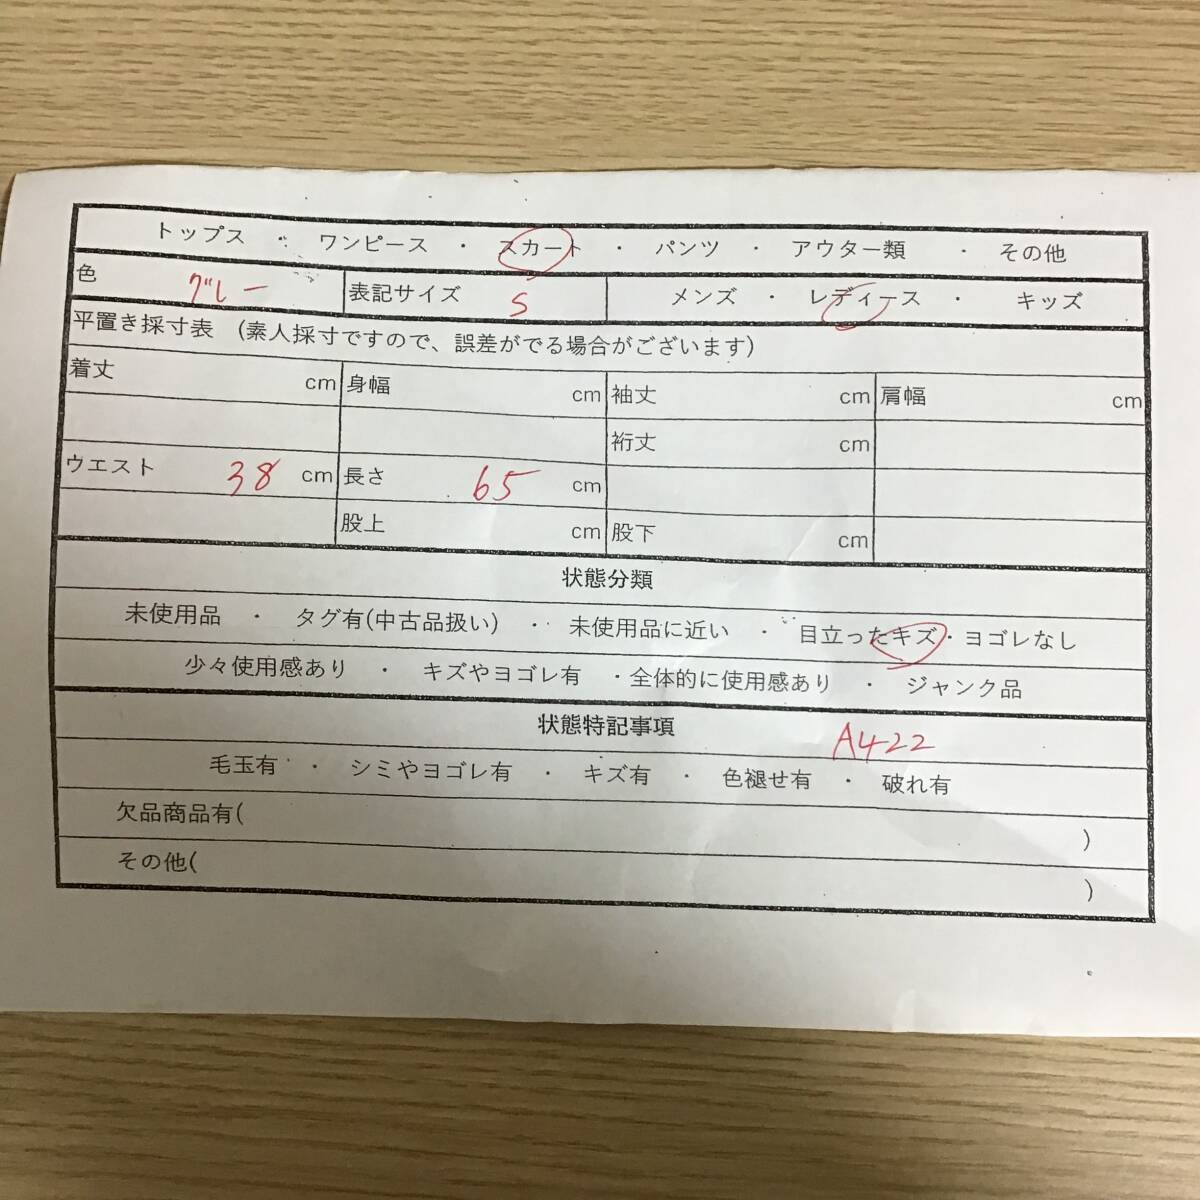 トップス ・ ワンピース ・ スカート ・ パンツ ・ アウター類 ・ その他
色 グレー 表記サイズ S メンズ ・ レディース ・ キッズ
平置き採寸表 (素人採寸ですので、誤差がでる場合がございます)
着丈 cm 身幅 cm 袖丈 cm 肩幅 cm
裄丈 cm
ウエスト 38 cm 長さ 65 cm
股上 cm 股下 cm
状態分類
未使用品 ・ タグ有(中古品扱い) ・ 未使用品に近い ・ 目立ったキズ・ヨゴレなし
少々使用感あり ・ キズやヨゴレ有 ・全体的に使用感あり ・ ジャンク品
状態特記事項 A422
毛玉有 ・ シミやヨゴレ有 ・ キズ有 ・ 色褪せ有 ・ 破れ有
欠品商品有( )
その他( )